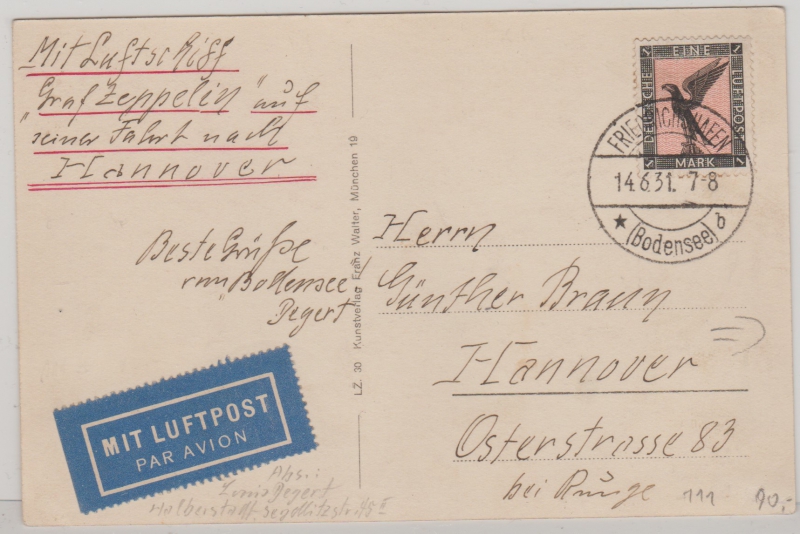 Mit Luftschiff
„Graf Zeppelin" auf
seiner Fahrt nach
Hannover
Beste Grüße
vom Bodensee!
Degert
MIT LUFTPOST
PAR AVION
Abs.:
Degert
Halberstadt-Seydlitzstr.
LZ. 30 Kunstverlag Franz Walter, München 19
1 EINE 1
DEUTSCHE
LUFTPOST
1 MARK 1
FRIEDRICHSHAFEN
14.6.31. 7-8
★ (Bodensee) b
Herrn
Günther Braun
Hannover
Osterstrasse 83
bei Runge
111